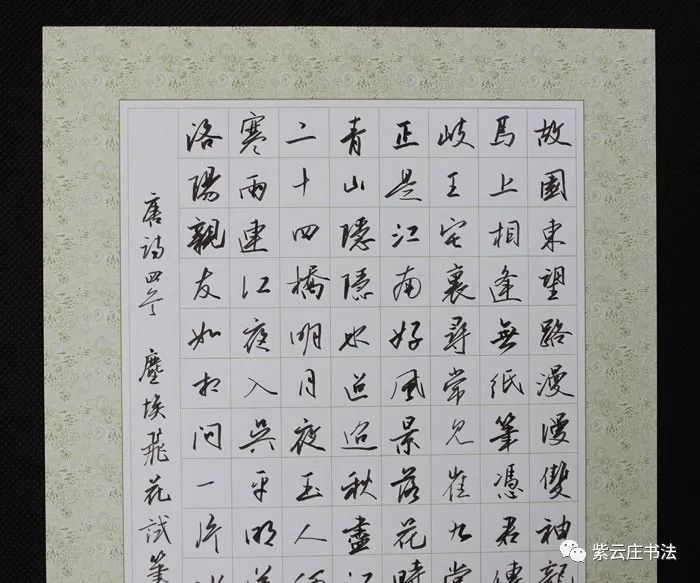 故園東望路漫漫雙袖龍
馬上相逢無紙筆憑君傳
岐王宅裏尋常見崔九堂
正是江南好風景落花時
青山隱隱水迢迢秋盡江
二十四橋明月夜玉人何
寒雨連江夜入吳平明送
洛陽親友如相問一片
唐詩四首 塵埃飛花試筆
紫云庄书法